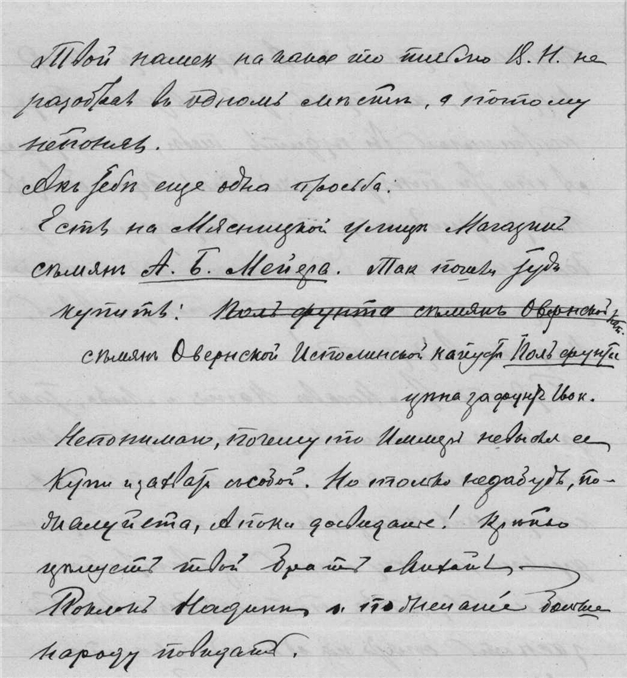 Твой намек на какое то письмо В. Н. не
разобрав въ одномъ мѣстѣ, а потому
непонялъ.
А къ тебѣ еще одна просьба:
Есть на Мясницкой улицѣ Магазинъ
сѣмянъ А. Б. Мейера. Так пошли туда
купить: Полъ фунта сѣмянъ Овернской
сѣмянъ Овернской Исполинской капусты Полъ фунта
цѣна за фунтъ
Непонимаю, почему то Иммеръ невыслал ее
Купи и захвати съ собой. Но только незабудь, по-
жалуйста, а пока досвиданiе! Крѣпко
цѣлуетъ твой братъ Михаилъ
Поклонъ Надинѣ и пожеланiе больше
народу повидать.